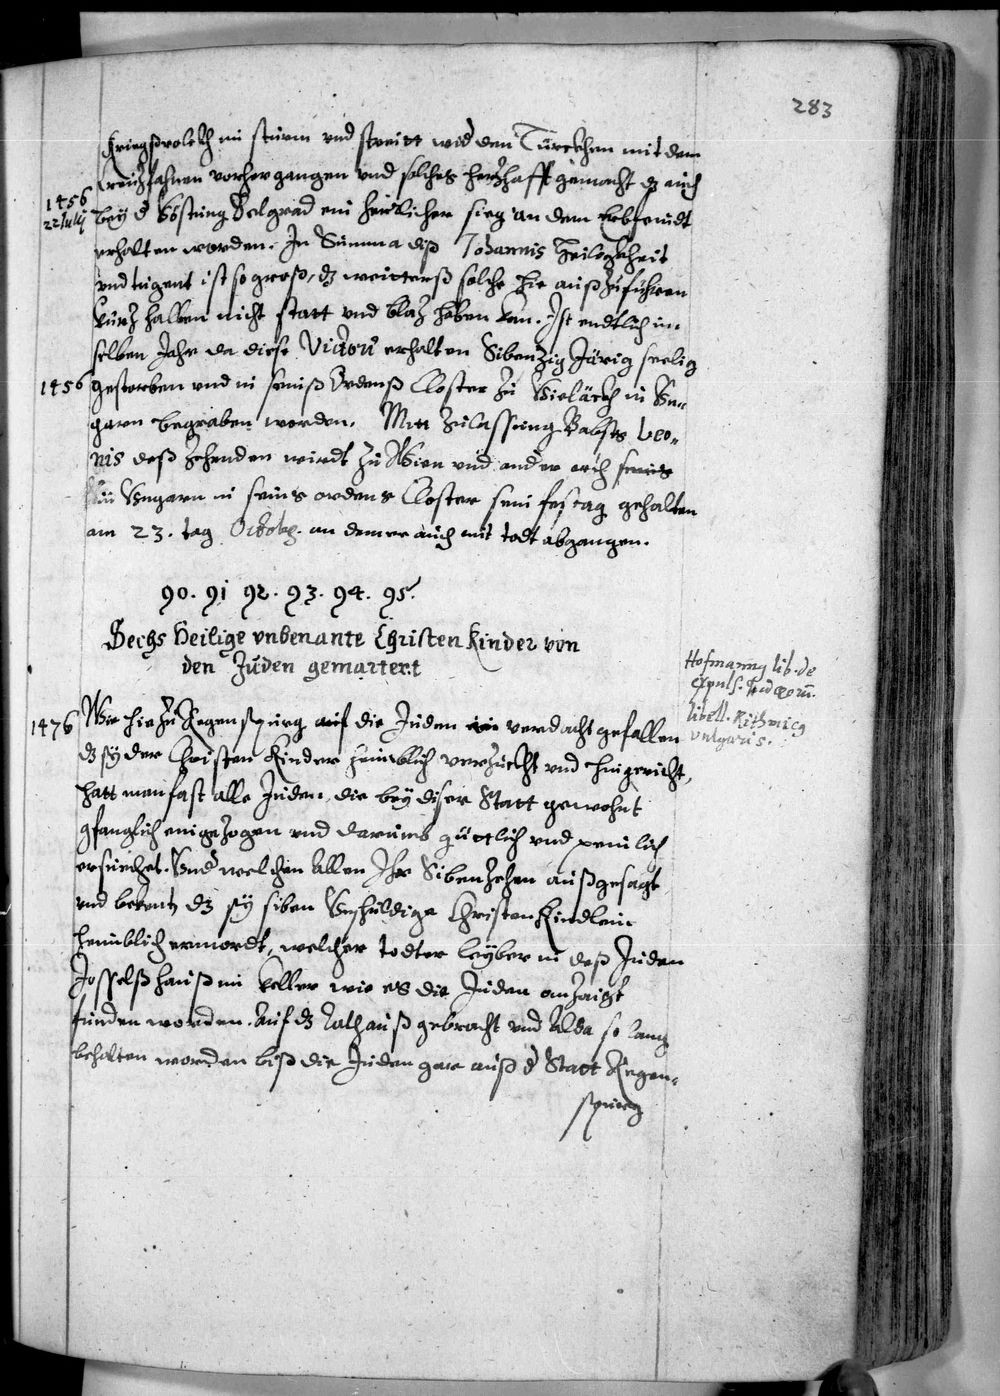 283
Kriegßvolckh im sturm vnd streitt wid den Türckhen mit dem
Creizfahnen vorher gangen vnd solches herzhafft gemacht dz auch
1456
22 Julij
bey d Vöstung Belgrad ein herlicher sieg an dem Erbfeindt
erhalten worden. In Summa diß Johannis Heiligkheit
vnd tugent ist so groß, dz weitterß solche hie außzuführen
kürz halben nicht statt vnd blaz haben kan. Ist endtlich im
selben Jahr da diese Victori erhalten Sibenzig Järig seelig
1456
gestorben vnd in seinß Ordenß Closter zu in Vn-
garn begraben worden. Mit zulassung Babsts Leo-
nis deß zehenden wirdt zu Wien vnd andern
in Vngarn in seins ordens Closter sein festag gehalten
am 23. tag Octob. an deme er auch mit todt abgangen.
90. 91 92. 93. 94. 95.
Sechs Heilige vnbenante Christen Kinder von
den Juden gemartert
Hofmanny lib. de
expuls. Judaeorū.
libell. Rithmicg
vulgaris.
1476
Wie hie zu Regenspurg auf die Juden ein verdacht gefallen
dz sy der Christen Kinder haimblich verzuckht vnd hingericht,
hatt man fast alle Juden, die bey diser Statt gewohnt
gfanglich eingezogen vnd darumb güettlich vnd peinlich
ersuechet. Vnd welchen allen Ihr Sibenzehen außgesagt
vnd bekent, dz sy siben Vnschuldige Christen Kindlein
haimblich ermordt, welcher todter leyber in deß Juden
Josselß hauß im Keller wie es die Juden anzaigt
funden worden. Auf dz Rathauß gebracht vnd Alda so lang
behalten worden biß die Juden gar auß d Statt Regen-
spurg